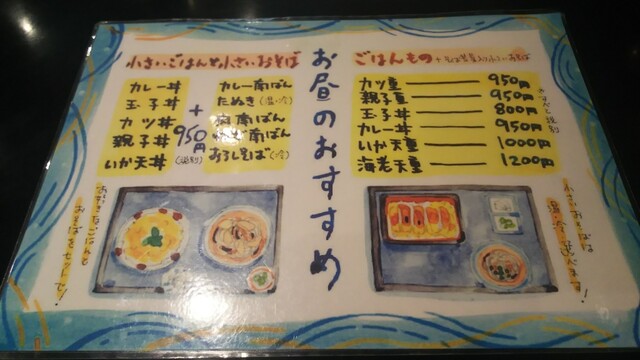 お昼のおすすめ
ごはんもの
カツ重 950円
親子重 950円
玉子丼 800円
カレー丼 950円
いか天重 1000円
海老天重 1200円
小さいおそばは
温・冷
小さいごはんと小さいおそば
カレー丼
玉子丼
カツ丼
親子丼
いか天丼
+
950円
(税別)
カレー南ばん
たぬき(温・冷)
南ばん
南ばん
おろしそば(冷)
おそばをセットで!